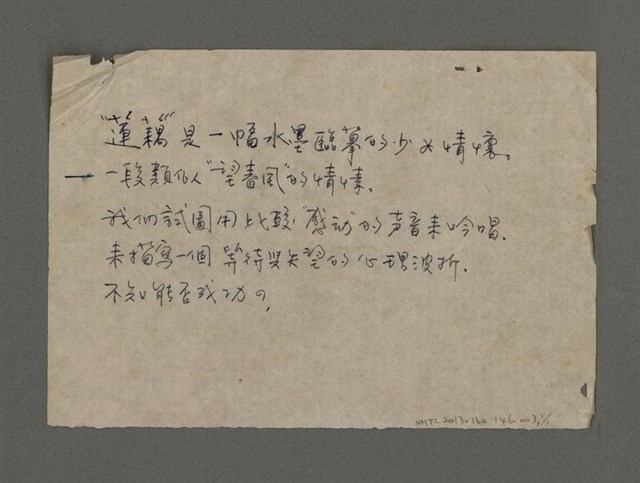 "蓮藕"是一幅水墨臨摹的少女情懷。
一段類似"望春風"的情愫.
我們試圖用比較"感动"的声音来吟唱.
来描寫一個等待與失望的心理波折.
不知能否成功?
NMTL 20130160 146 003, 1/1